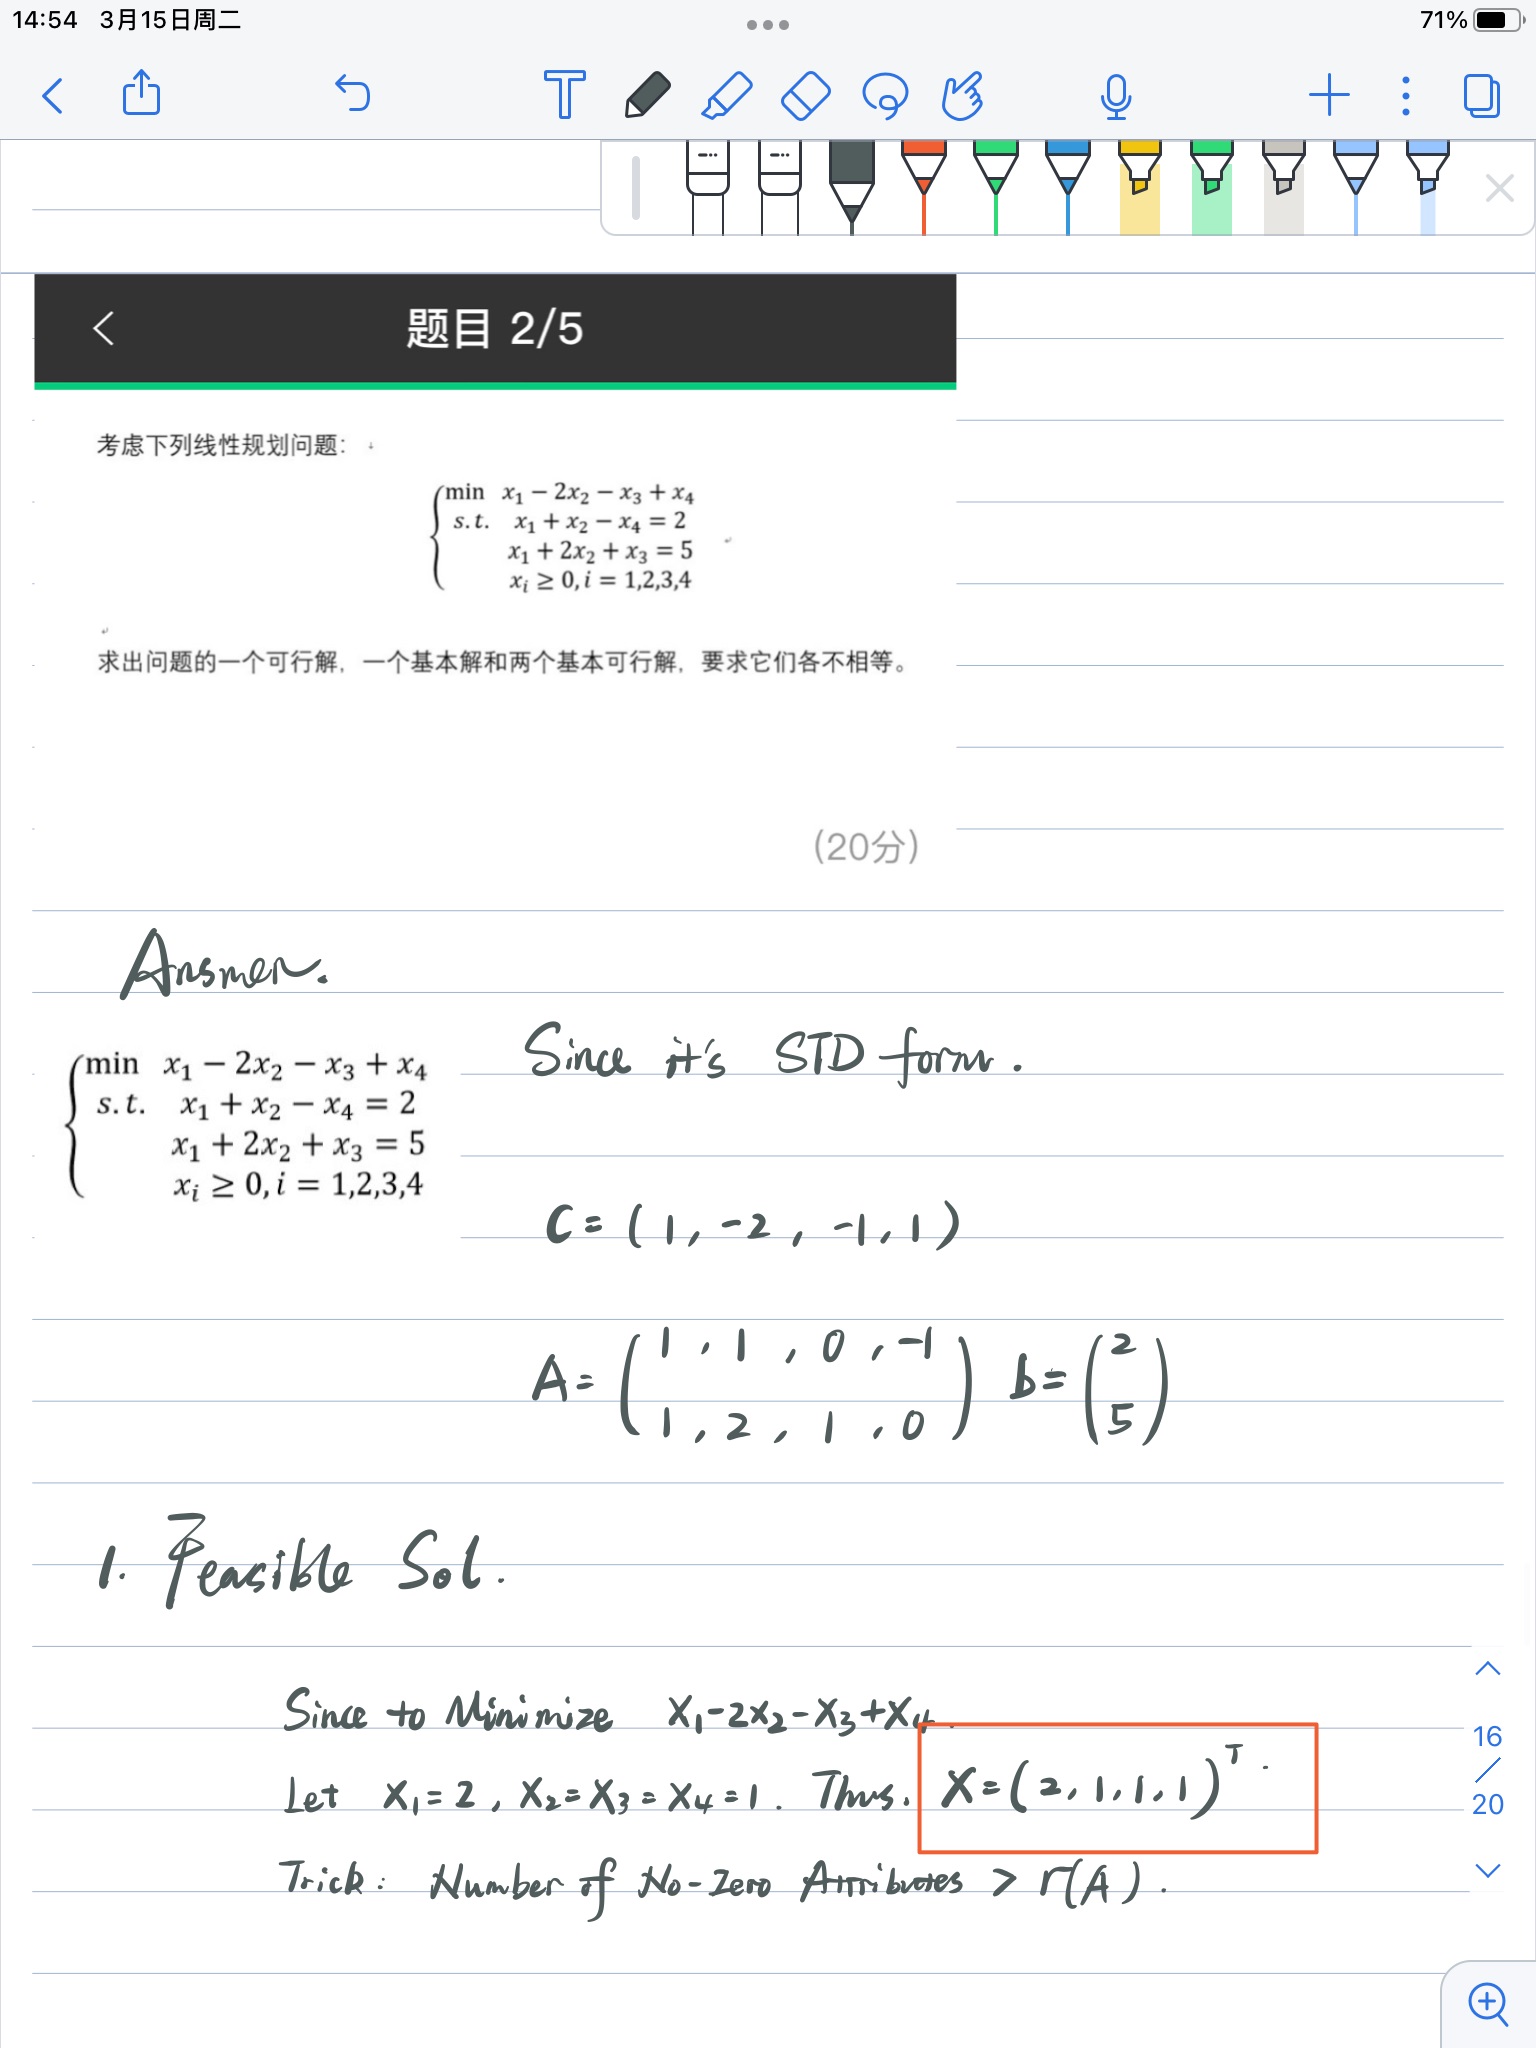 14:54 3月15日周二 71%
题目 2/5
考虑下列线性规划问题:
min x₁ − 2x₂ − x₃ + x₄
s.t. x₁ + x₂ − x₄ = 2
x₁ + 2x₂ + x₃ = 5
xᵢ ≥ 0, i = 1,2,3,4
求出问题的一个可行解，一个基本解和两个基本可行解，要求它们各不相等。
(20分)
Answer.
min x₁ − 2x₂ − x₃ + x₄
s.t. x₁ + x₂ − x₄ = 2
x₁ + 2x₂ + x₃ = 5
xᵢ ≥ 0, i = 1,2,3,4
Since it's STD form.
C = (1, -2, -1, 1)
A = (1, 1, 0, -1
1, 2, 1, 0) b = (2
5)
1. Feasible Sol.
Since to Minimize X₁-2X₂-X₃+X₄.
Let X₁=2, X₂=X₃=X₄=1. Thus. X=(2,1,1,1)ᵀ.
Trick: Number of No-Zero Attributes > r(A).
16
/
20